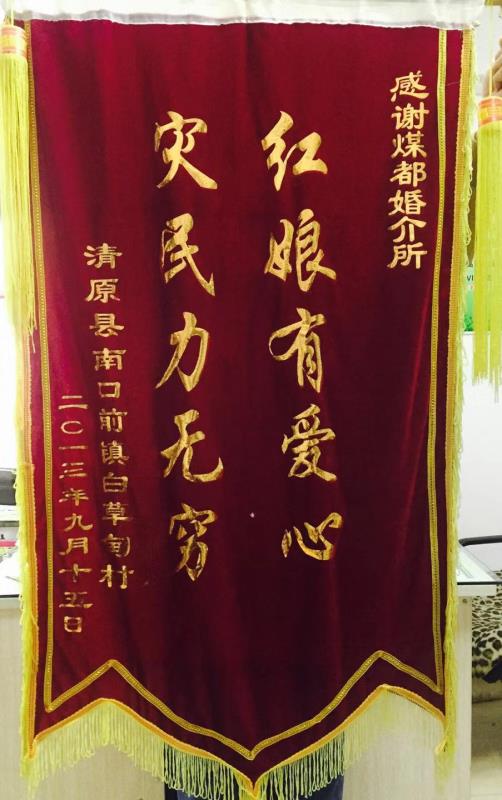 感谢煤都婚介所
红娘有爱心
灾民力无穷
清原县南口前镇白草甸村
二〇一三年九月十五日